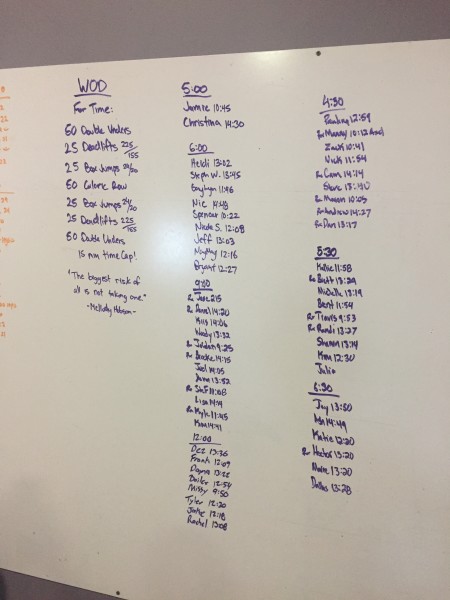 WOD
For Time:
50 Double Unders
25 Deadlifts 225/155
25 Box Jumps 24/20
50 Calorie Row
25 Box Jumps 24/20
25 Deadlifts 225/155
50 Double Unders
15 min time Cap!
"The biggest risk of
all is not taking one."
5:00
Jamie 10:45
Christina 14:30
6:00
Heidi 13:02
Steph W. 13:45
11:46
Nic 14:48
Spencer 10:22
Nicole S. 12:08
Jeff 13:03
12:16
Bryant 12:27
9:10
Rx Jose
Rx 14:20
Kris 14:06
Woody 13:32
Rx Jordan 9:25
Rx Brooke 14:15
Joel 14:05
13:52
Rx 11:08
Lisa
Rx Kyle 11:45
12:00
Dez 13:36
Frank 12:09
Dayna
12:54
Missy 9:50
Tyler 12:30
12:18
Rachel 13:08
4:30
12:59
Rx 10:12
Zack 10:41
Nick 11:54
Rx Cam 14:14
Steve 13:40
Rx Mason 10:05
Rx Andrew 14:27
Rx Dan 13:17
5:30
11:58
Rx Brett 13:29
Michelle 13:19
Brent 11:54
Rx Travis 9:53
Rx Randi 13:27
Shawn 13:14
Kim 12:30
Julie
6:30
Jay 13:50
14:49
Katie 12:20
Rx Hector 13:20
13:20
Dallas 13:28